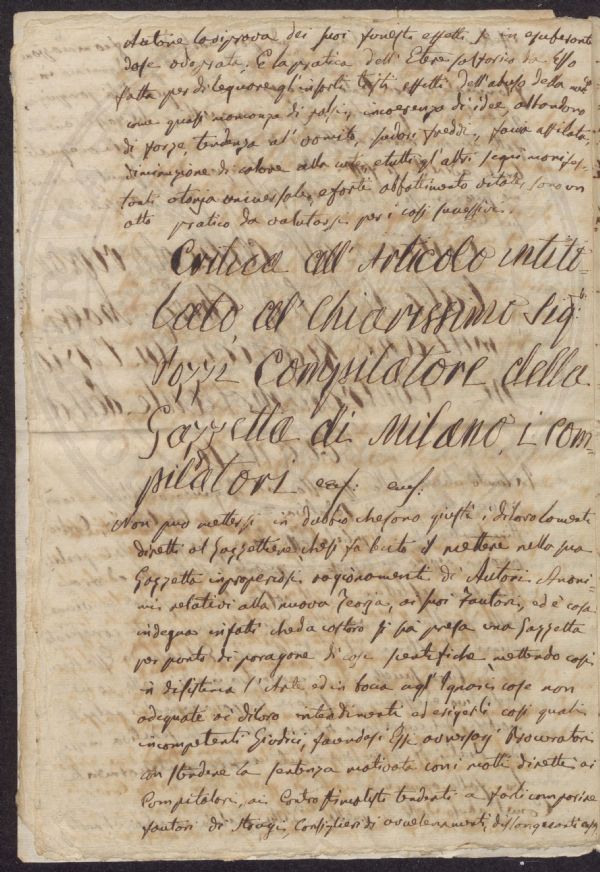 Autore la riprova dei suoi funesti effetti se in esuberante
dose adoprata. E la pratica dell'Etere solforico da Esso
fatta per dileguare gl'insorti tristi effetti dell'abuso della
come quasi mancanza di polsi, incoerenza d'idee, abbandono
di forze tendenza al vomito, sudori freddi, faccia affilata
diminuzione di calore alla cute, e tutti gl'altri segni manifes-
tanti atonia universale, e forte abbattimento vitale, sono un
atto pratico da valutarsi per i casi successivi.
Critica all'Articolo intito-
lato al Chiarissimo Sig.
Pozzi Compilatore della
Gazzetta di Milano, i com-
pilatori
Non può mettersi in dubbio che sono giusti i di loro lamenti
diretti al Gazzettiere, che si fa lecito il mettere nella sua
Gazzetta improperiosi ragionamenti di Autori Anoni-
mi relativi alla nuova Teoria, ai suoi Fautori, ed è cosa
indegna infatti che da costoro si sia presa una Gazzetta
per punto di paragone di cose scientifiche mettendo così
in disistima l'Arte ed in bocca agl'Ignari cose non
adequate ai di loro intendimenti ed esigerli così quali
incompetenti Giudici, facendosi Essi Procuratori
con stendere la sentenza motivata con i motti diretti ai
Compilatori, ai Contro Stimolisti tendenti a farli comparire
fautori di Stragi, Consiglieri di avvelenamenti,